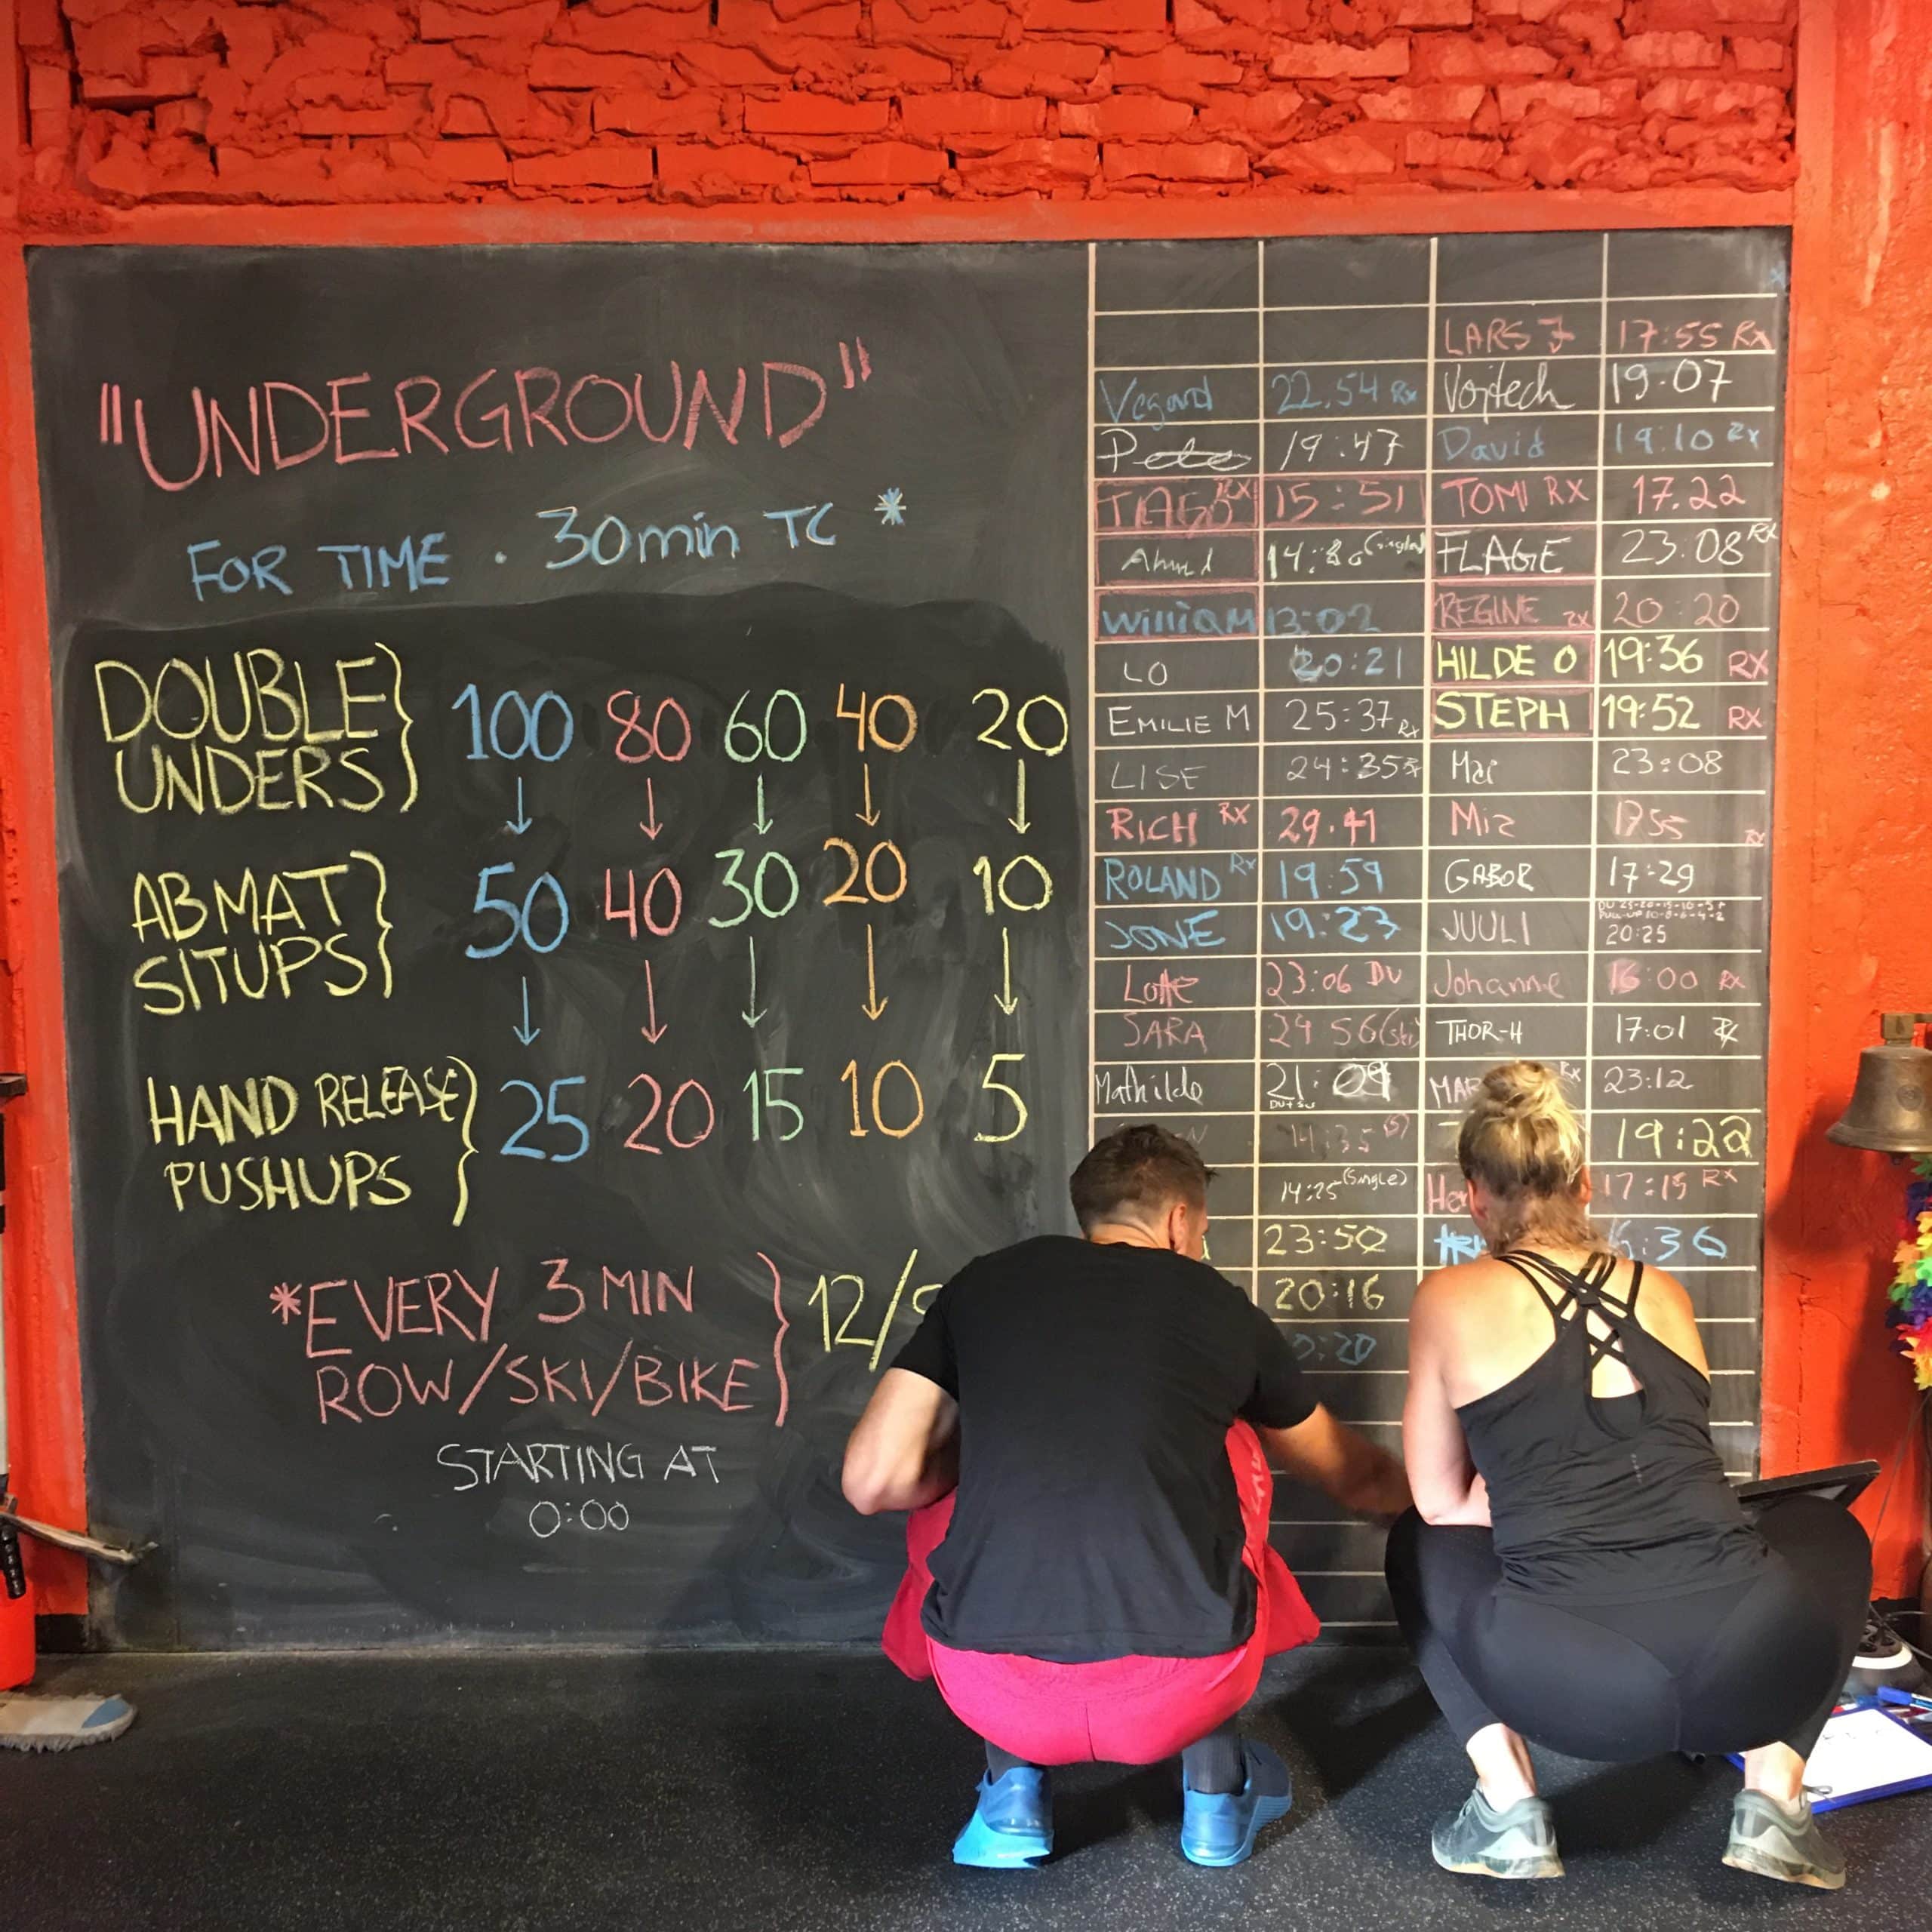 "UNDERGROUND"
FOR TIME . 30min TC *
DOUBLE UNDERS } 100 80 60 40 20
ABMAT SITUPS } 50 40 30 20 10
HAND RELEASE PUSHUPS } 25 20 15 10 5
*EVERY 3 MIN } 12/
ROW/SKI/BIKE
STARTING AT
0:00
LARS J 17:55 Rx
Vegard 22.54 Rx Vojtech 19.07
19:47 David 19:10 Rx
TIAGO RX 15:51 TOMI RX 17.22
14: FLAGE 23:08 RX
William 13:02 REGINE RX 20:20
LO 20:21 HILDE O 19:36 RX
EMILIE M 25:37 Rx STEPH 19:52 RX
LISE 24:35 Rx 23:08
RICH RX 29.41 1755 Rx
ROLAND Rx 19:59 GABOR 17:29
JONE 19:23 JUULI DU 25-20-15-10-5 + PULL-UP 10-8-6-4-2
20:25
Lotte 23:06 DU Johanne 16:00 Rx
SARA 24 56 (ski) THOR-H 17:01 Rx
Mathilde 21:09 MAR Rx 23:12
DU+SU
14:35 (S) 19:22
14:25 (Single) Her 17:15 RX
23:50 :36
20:16
:20